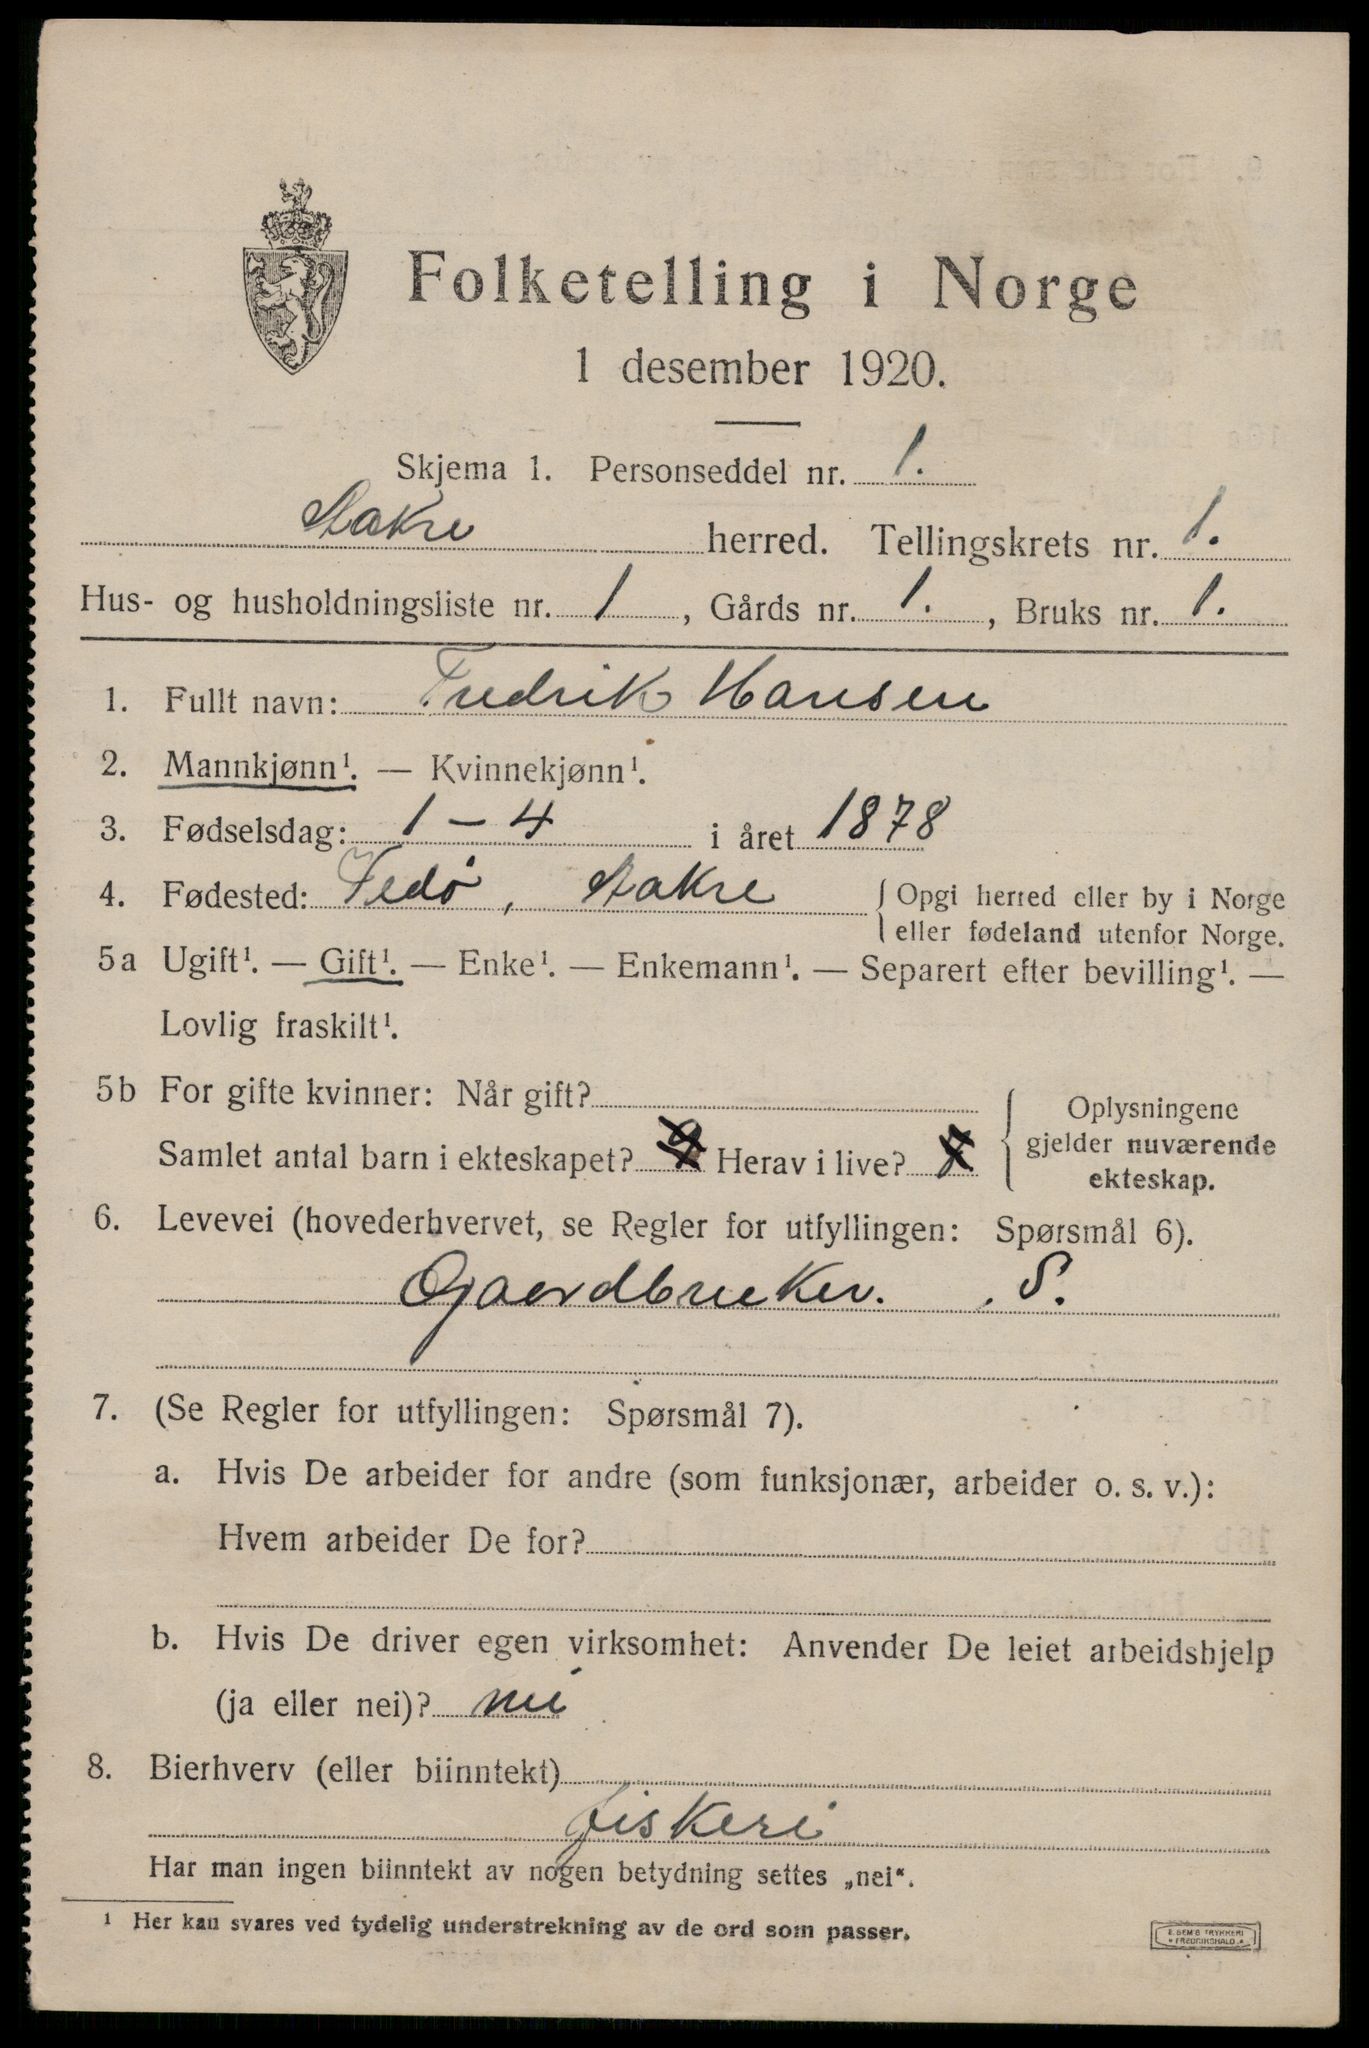 Folketelling i Norge
1 desember 1920.
Skjema 1. Personseddel nr. 1.
Aakre herred. Tellingskrets nr. 1.
Hus- og husholdningsliste nr. 1, Gårds nr. 1., Bruks nr. 1.
1. Fullt navn: Fredrik Hansen
2. Mannkjønn¹. — Kvinnekjønn¹.
3. Fødselsdag: 1 – 4 i året 1878
4. Fødested: Fedø, Aakre { Opgi herred eller by i Norge
eller fødeland utenfor Norge.
5a Ugift¹. — Gift¹. — Enke¹. — Enkemann¹. — Separert efter bevilling¹. —
Lovlig fraskilt¹.
5b For gifte kvinner: Når gift?
Samlet antal barn i ekteskapet? Herav i live?
Oplysningene
gjelder nuværende
ekteskap.
6. Levevei (hovederhvervet, se Regler for utfyllingen: Spørsmål 6).
Gaardbruker. S.
7. (Se Regler for utfyllingen: Spørsmål 7).
a. Hvis De arbeider for andre (som funksjonær, arbeider o. s. v.):
Hvem arbeider De for?
b. Hvis De driver egen virksomhet: Anvender De leiet arbeidshjelp
(ja eller nei)? nei
8. Bierhverv (eller biinntekt)
fiskeri
Har man ingen biinntekt av nogen betydning settes „nei“.
¹ Her kan svares ved tydelig understrekning av de ord som passer.
E. SEM'S TRYKKERI
FREDRIKSHALD